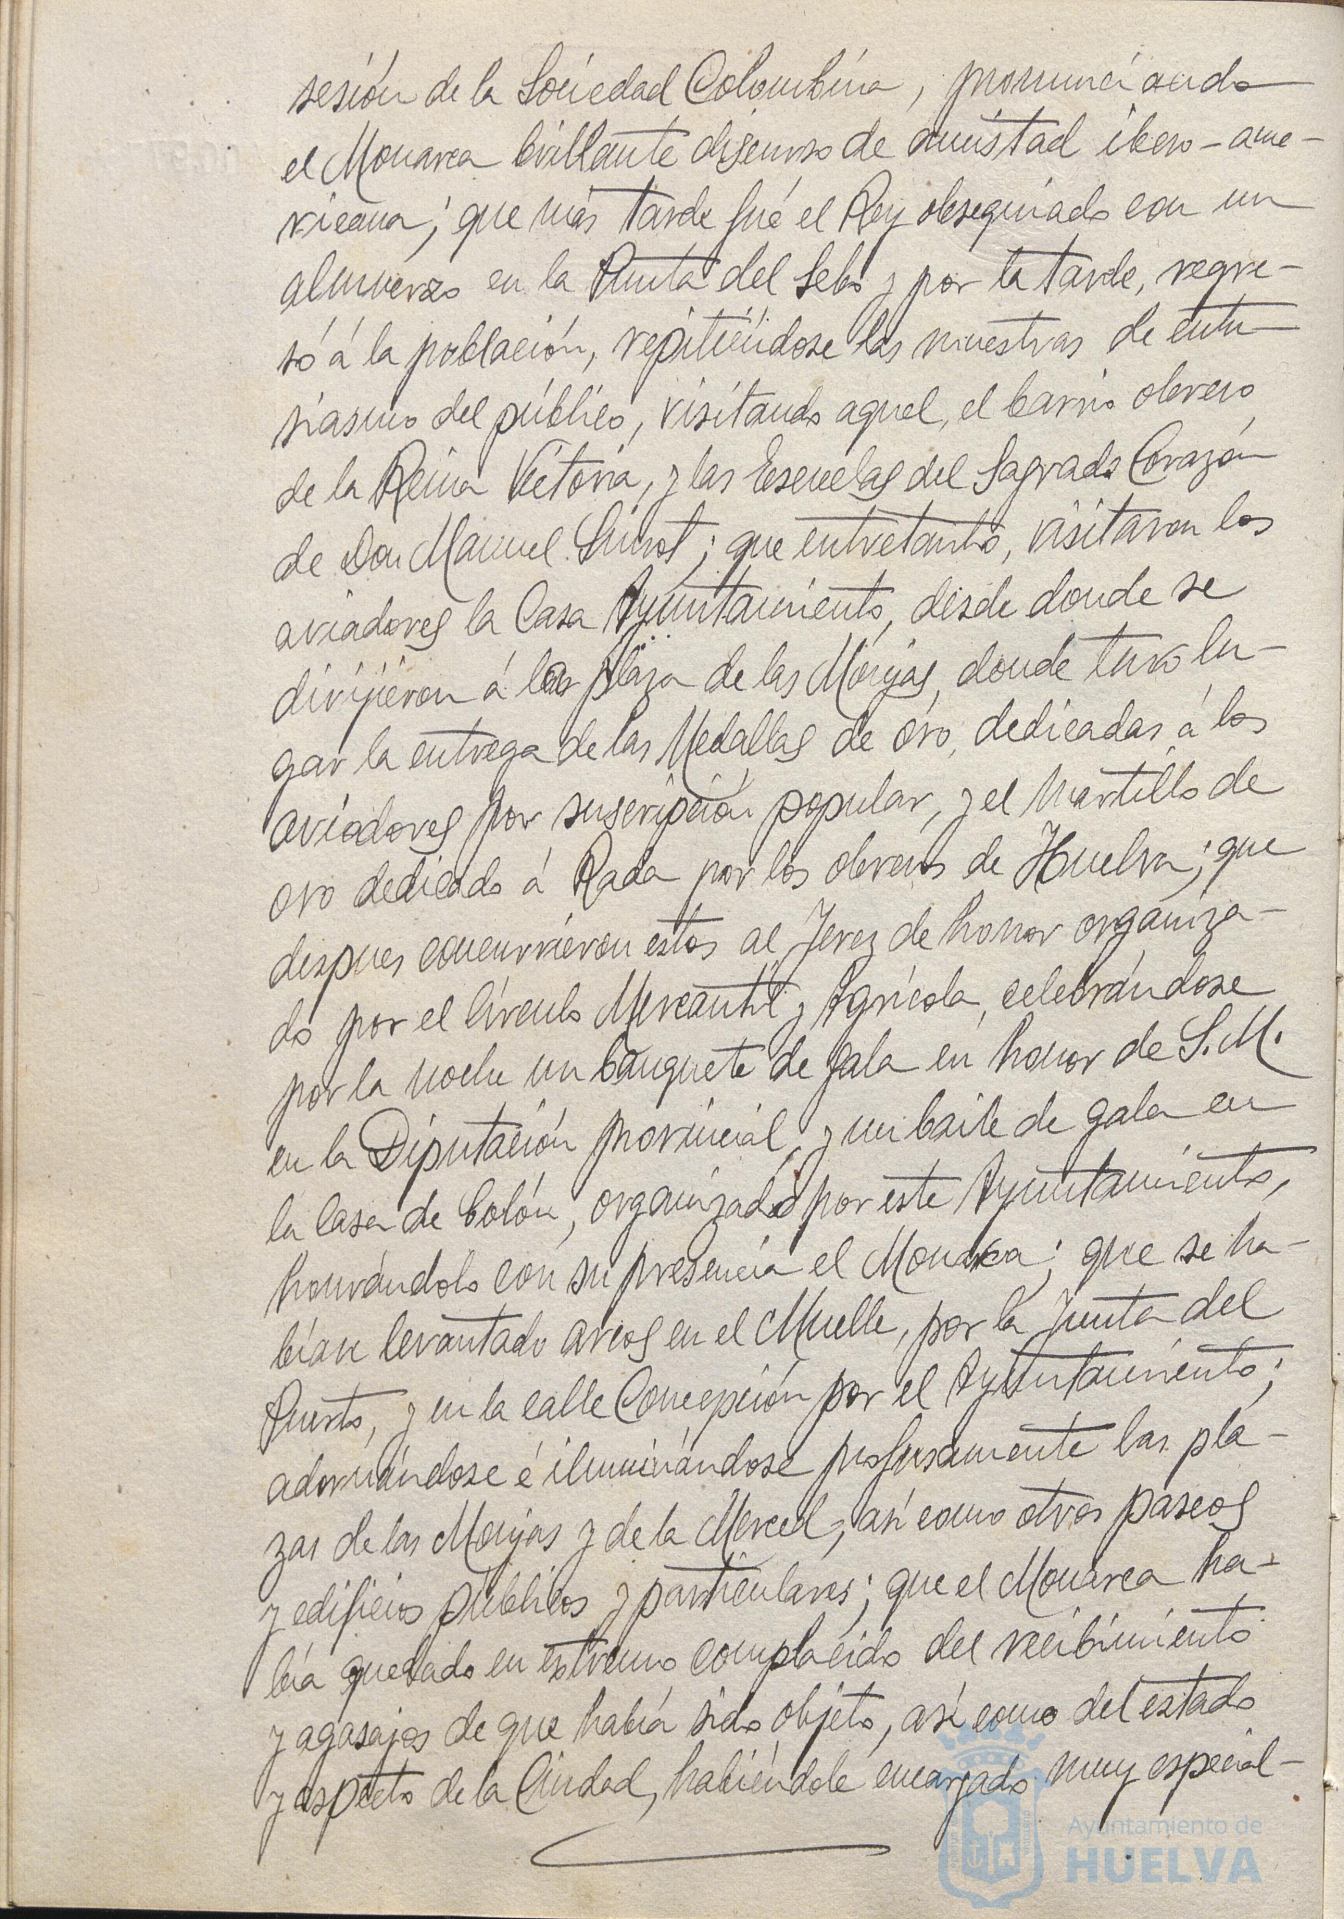 sesión de la Sociedad Colombina, pronunciando
el Monarca brillante discurso de amistad ibero-ame-
ricana; que más tarde fué el Rey obsequiado con un
almuerzo en la Punta del Sebo y por la tarde, regre-
só á la población, repitiéndose las muestras de entu-
siasmo del público, visitando aquel, el barrio obrero
de la Reina Victoria, y las Escuelas del Sagrado Corazón
de Don Manuel Siurot; que entretanto, visitaron los
aviadores la Casa Ayuntamiento, desde donde se
dirijieron á la plaza de las Monjas, donde tuvo lu-
gar la entrega de las Medallas de oro, dedicadas á los
aviadores por suscripción popular, y el Martillo de
oro dedicado á Rada por los obreros de Huelva; que
despues concurrieron estos al Jerez de honor organiza-
do por el Círculo Mercantil y Agrícola, celebrándose
por la noche un banquete de gala en honor de S.M.
en la Diputación provincial, y un baile de gala en
la Casa de Colón, organizado por este Ayuntamiento,
honrándolo con su presencia el Monarca; que se ha-
bían levantado arcos en el Muelle, por la Junta del
Puerto, y en la calle Concepción por el Ayuntamiento;
adornándose é iluminándose profusamente las pla-
zas de las Monjas y de la Merced, así como otros paseos
y edificios públicos y particulares; que el Monarca ha-
bía quedado en extremo complacido del recibimiento
y agasajos de que había sido objeto, así como del estado
y aspecto de la Ciudad, habiéndole encargado muy especial-
Ayuntamiento de
HUELVA